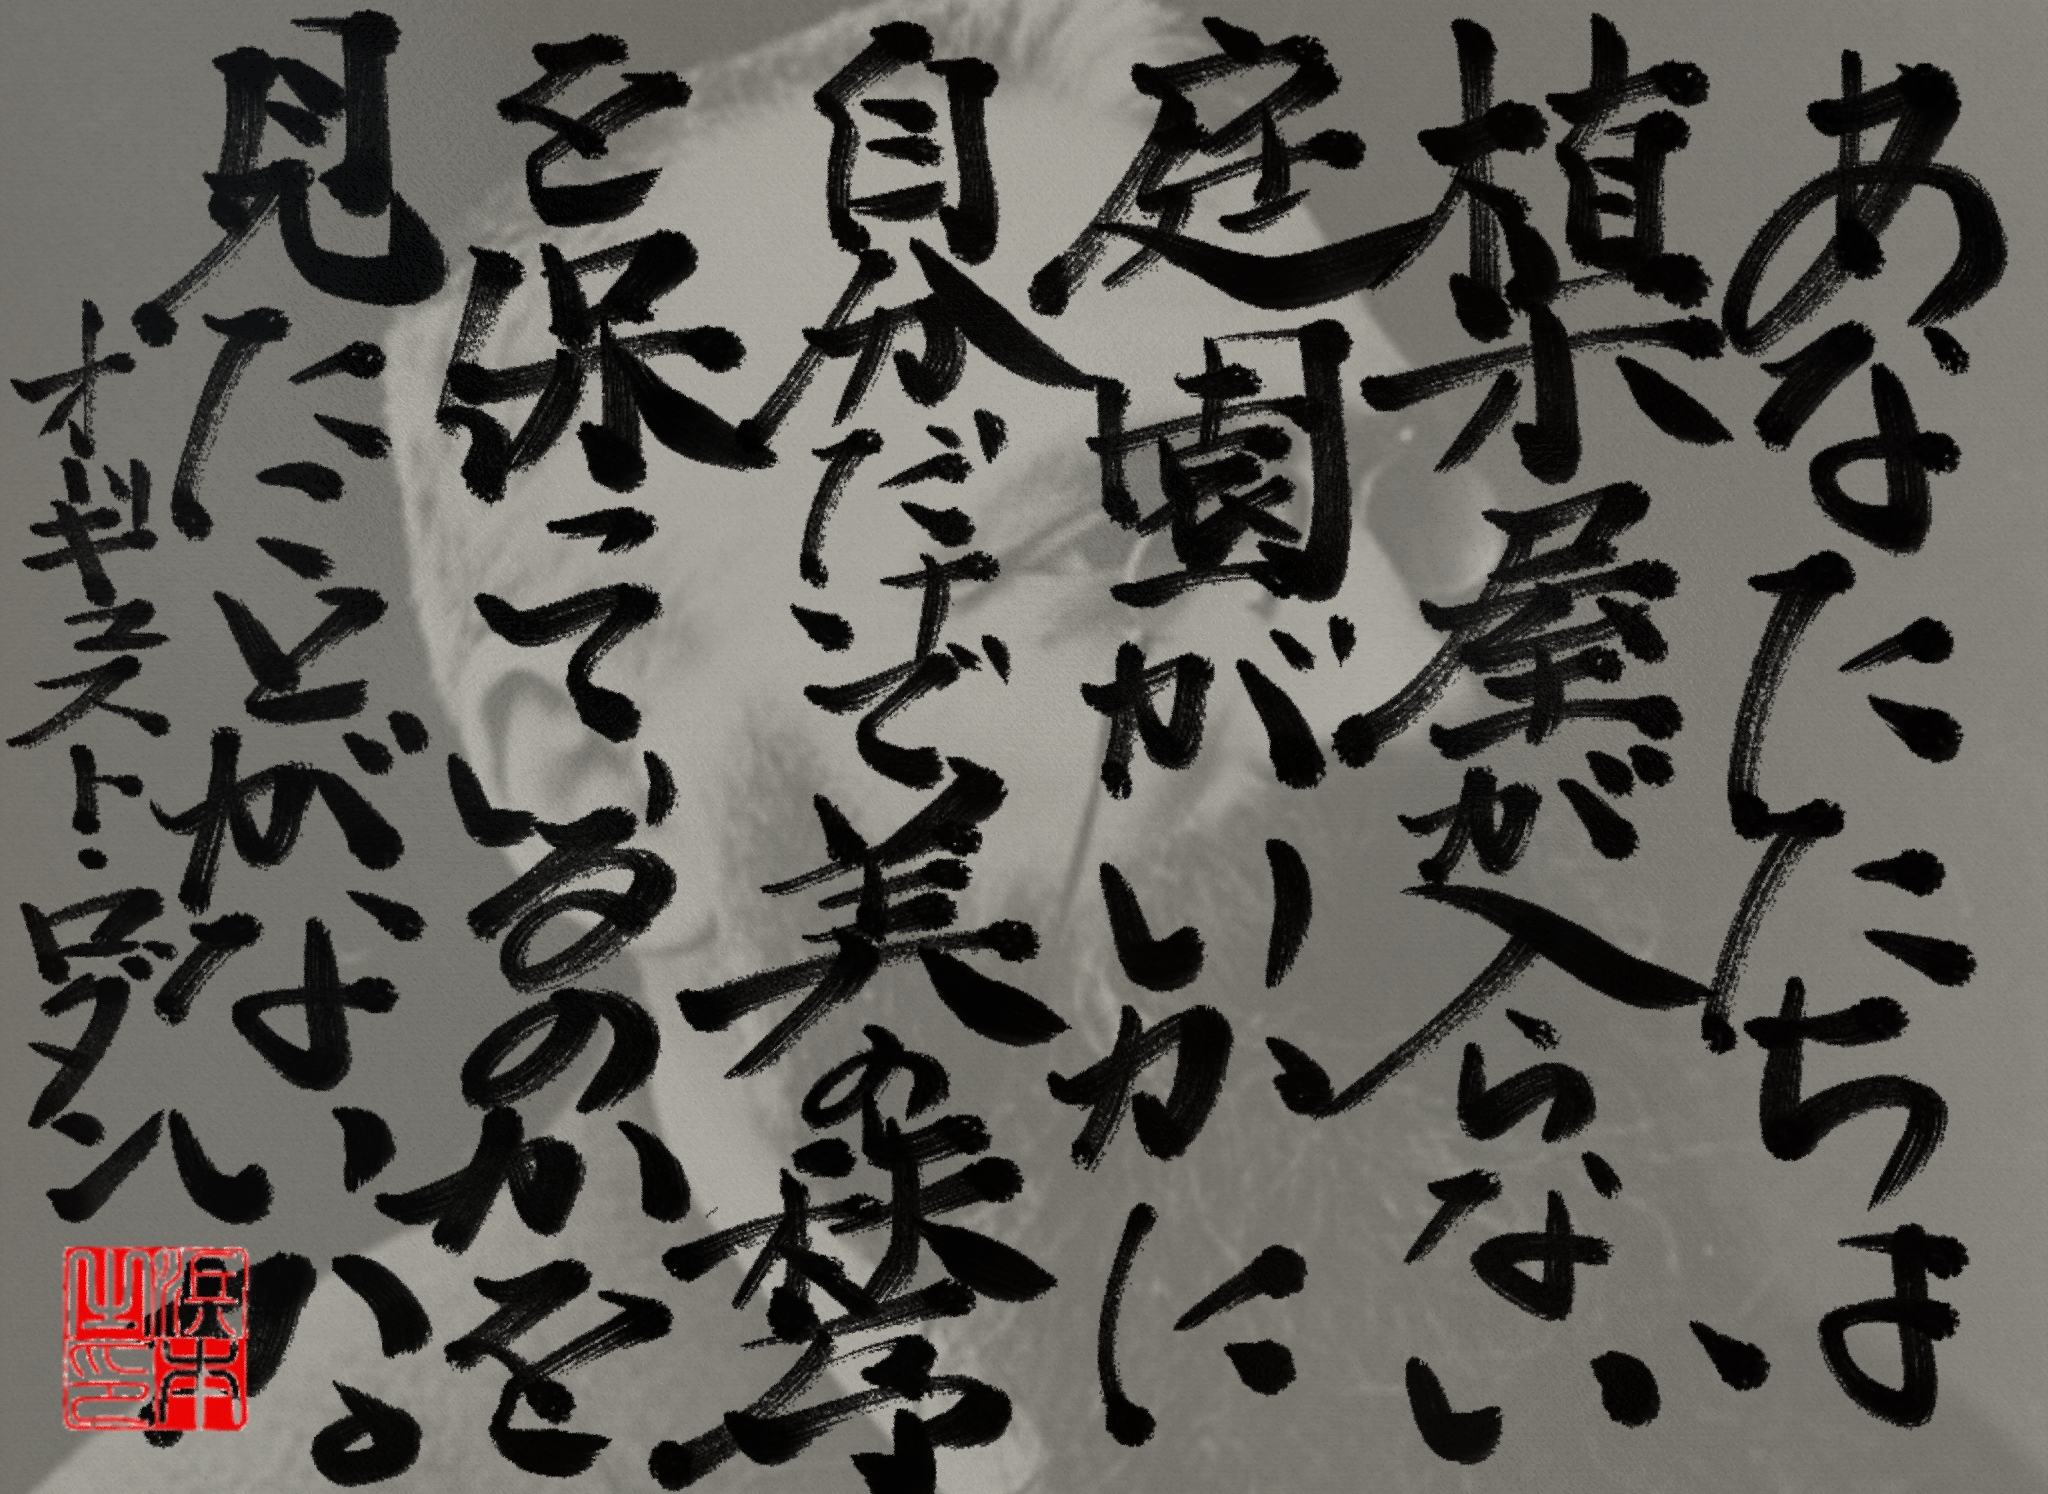 あなたたちは
植木屋が入らない
庭園がいかに
自分だけで美の秩序
を保っているのかを
見たことがないか。
オーギュスト・ロダン
浜本
之印